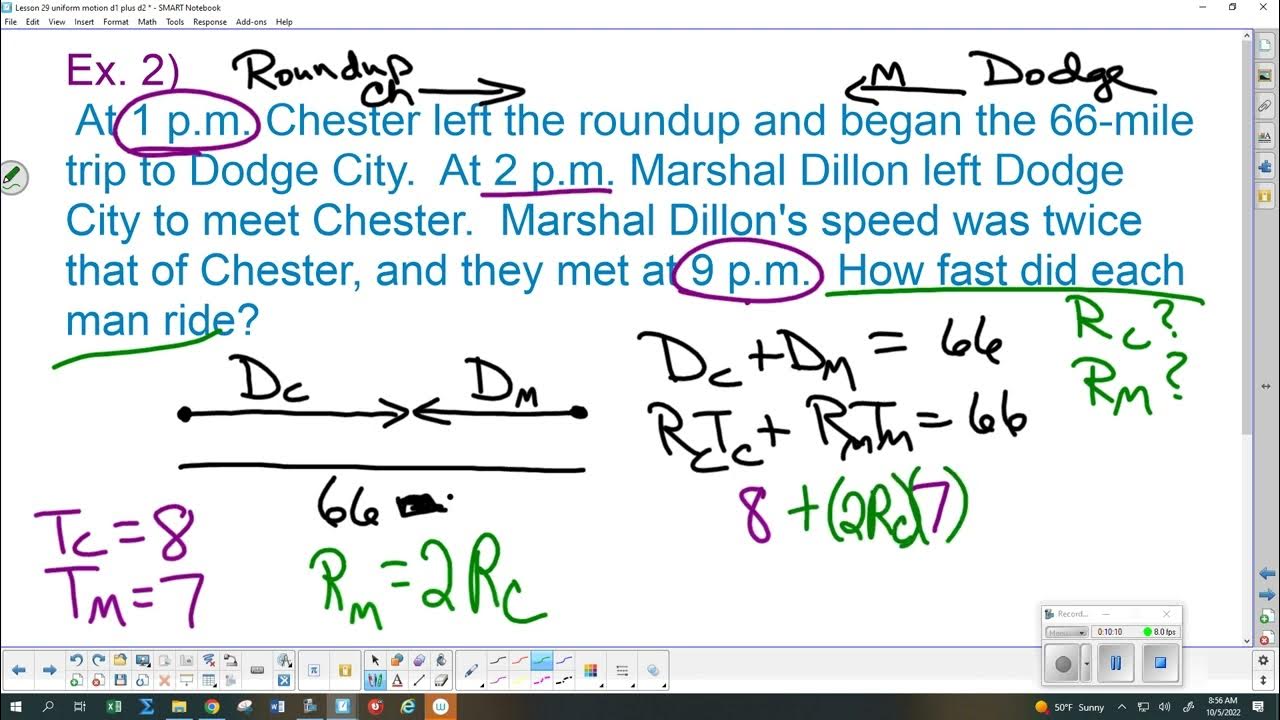 Lesson 29 uniform motion d1 plus d2 * - SMART Notebook
File Edit View Insert Format Math Tools Response Add-ons Help
Ex. 2) Roundup Dodge
Ch M
At 1 p.m. Chester left the roundup and began the 66-mile
trip to Dodge City. At 2 p.m. Marshal Dillon left Dodge
City to meet Chester. Marshal Dillon's speed was twice
that of Chester, and they met at 9 p.m. How fast did each
man ride?
Rc?
RM?
Dc DM
Dc + DM = 66
RcTc + RmTm = 66
66
8 + (2Rc)(7)
Tc = 8
TM = 7
RM = 2Rc
Record...
Menu
0:10:10
8.0 fps
50°F Sunny
8:56 AM
10/5/2022